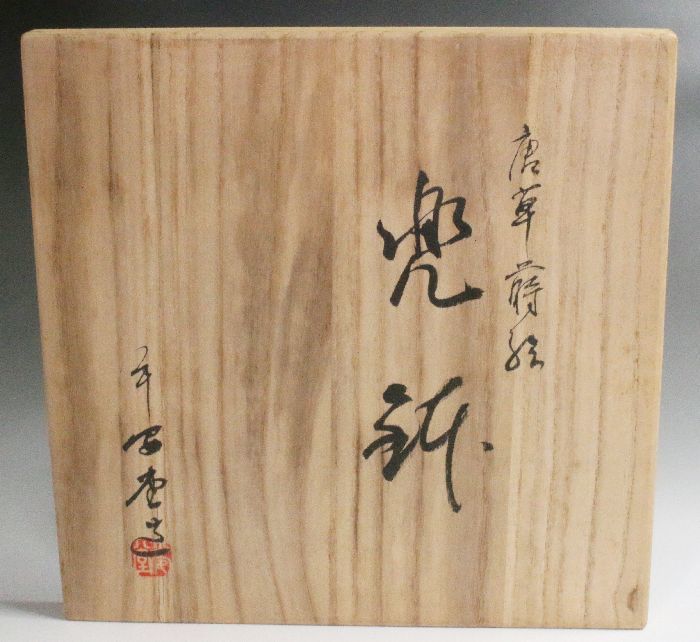 唐草蒔絵
兜鉢
平安堂造